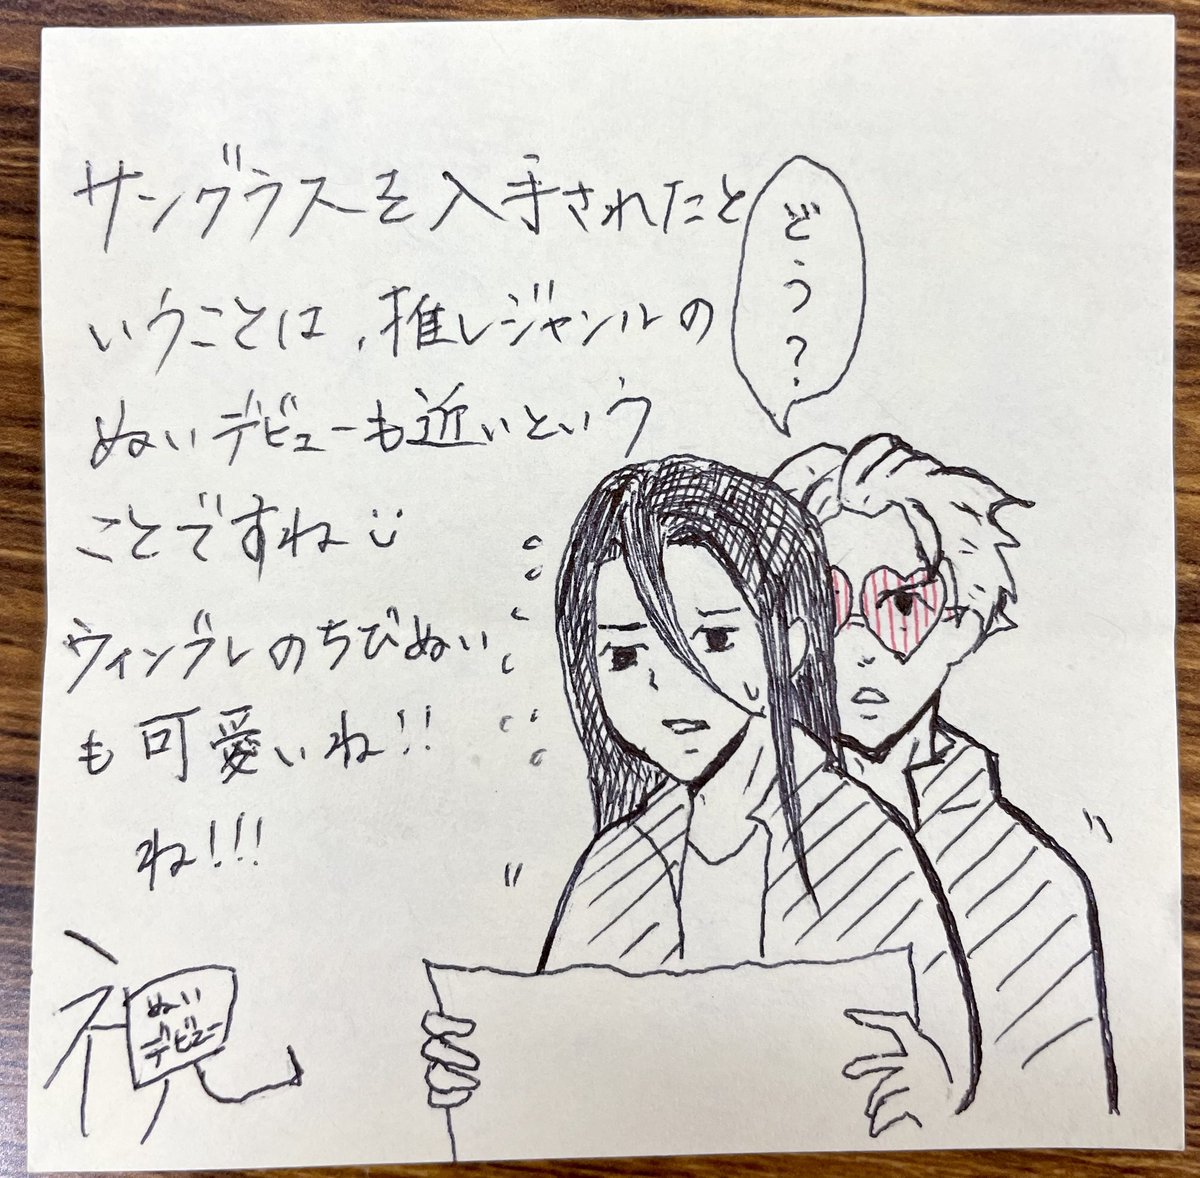 サングラスを入手されたと
いうことは、推しジャンルの
ぬいデビューも近いという
ことですね
ウィンブレのちびぬい
も可愛いね!!
ね!!!
どう?
祝
ぬい
デビュー